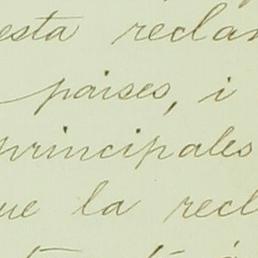 esta reclam
paises, i
principales
que la recl